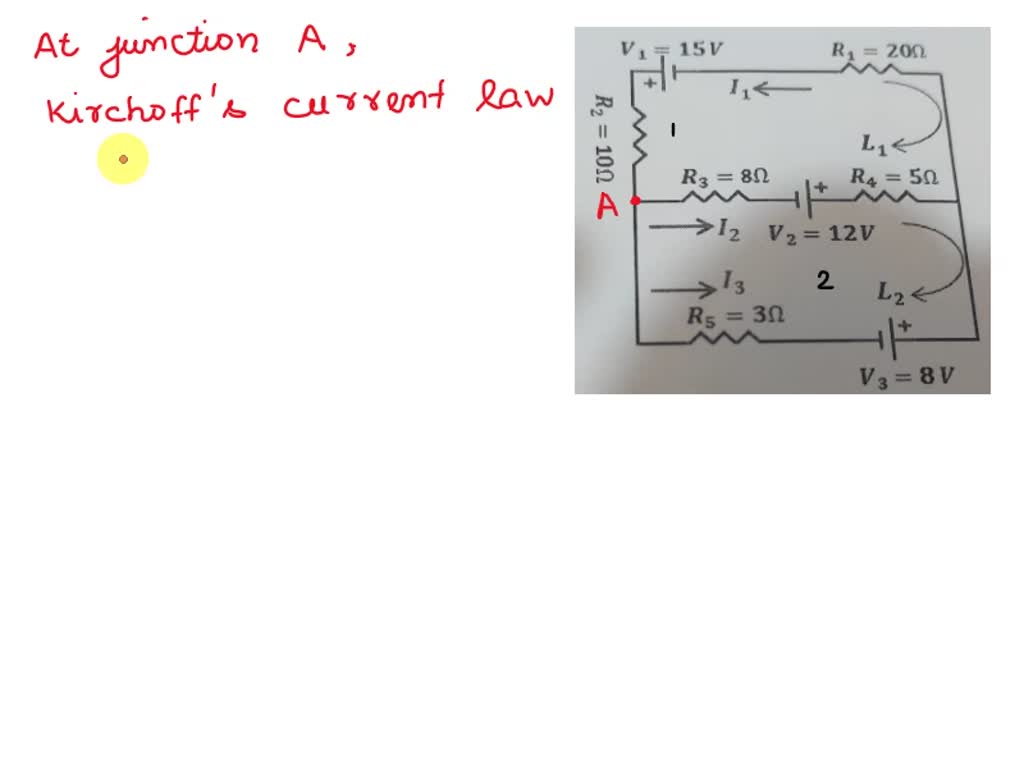 At junction A,
Kirchoff's current law
V₁ = 15V
R₁ = 20Ω
+
I₁
R₂ = 10Ω
1
L₁
R₃ = 8Ω
+
R₄ = 5Ω
A
I₂
V₂ = 12V
I₃
2
L₂
R₅ = 3Ω
+
V₃ = 8V